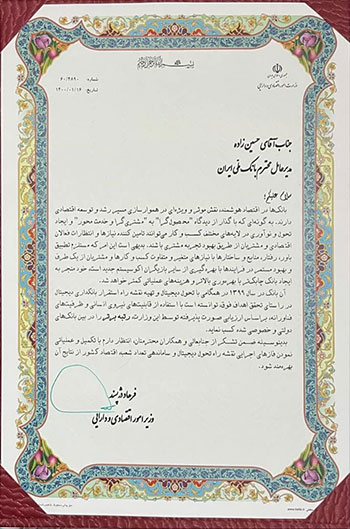 بسم الله الرحمن الرحیم
جمهوری اسلامی ایران
وزارت امور اقتصادی و دارایی
شماره ۶۰/۴۸۹۰
تاریخ: ۱۴۰۰/۰۱/۱۶
جناب آقای حسین زاده
مدیرعامل محترم بانک ملی ایران
سلام علیکم؛
بانک‌ها در اقتصاد هوشمند، نقش موثر و ویژه‌ای در هموارسازی مسیر رشد و توسعه اقتصادی
دارند. به گونه‌ای که با گذار از دیدگاه "محصول‌گرا" به "مشتری‌گرا و خدمت محور" و ایجاد
تحول و نوآوری در لایه‌های مختلف کسب و کار می‌توانند تامین کننده نیازها و انتظارات فعالان
اقتصادی و مشتریان از طریق بهبود تجربه مشتری باشند. بدیهی است این امر که مستلزم تطبیق
باور، رفتار، منابع و ساختارها با نیازهای متغیر و متفاوت کسب و کارها و مشتریان از یک طرف
و بهبود مستمر در فرایندها با بهره‌گیری از سایر بازیگران اکوسیستم جدید است، خود منجر به
ایجاد بانک چابک‌تر با بهره‌وری بالاتر و هزینه‌های عملیاتی کمتر خواهد شد.
آن بانک در سال ۱۳۹۹ در همگامی با تحول دیجیتال و تهیه نقشه راه استقرار بانکداری دیجیتال
در راستای تحقق اهداف فوق، توانسته است با استفاده از قابلیت‌های نیروی انسانی و ظرفیت‌های
فناورانه، براساس ارزیابی صورت پذیرفته توسط این وزارت، رتبه برتر را در بین بانک‌های
دولتی و خصوصی شده کسب نماید.
بدینوسیله ضمن تشکر از جنابعالی و همکاران محترمتان، انتظار دارم با تکمیل و عملیاتی
نمودن فازهای اجرایی نقشه راه تحول دیجیتال و ساماندهی تعداد شعب، اقتصاد کشور از نتایج آن
بهره‌مند شود.
فرهاد دژپسند
وزیر امور اقتصادی و دارایی